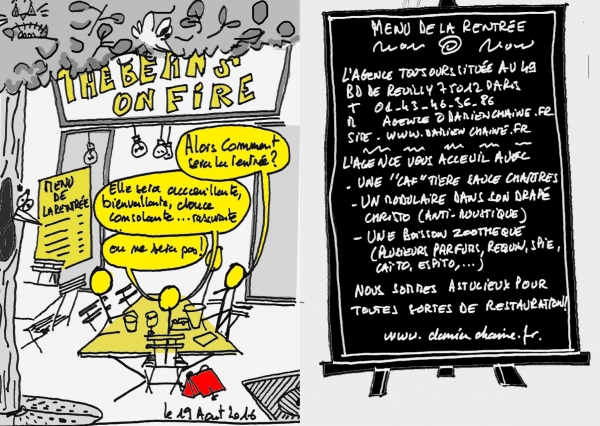 THE BEANS'
ON FIRE
Alors comment
sera la rentrée?
Elle sera accueillante,
bienveillante, douce
consolante... rassurante
ou ne sera pas!
MENU
DE
LA RENTRÉE
le 19 Août 2016
MENU DE LA RENTRÉE
L'AGENCE TOUJOURS SITUÉE AU 49
BD DE REUILLY 75012 PARIS
T 01-43-46-56-86
M AGENCE@DAMIENCHAINE.FR
SITE - WWW.DAMIENCHAINE.FR
L'AGENCE VOUS ACCEUIL AVEC
- UNE "CAF"TIÈRE SAUCE CHARTRES
- UN MODULAIRE DANS SON DRAPÉ
CHRISTO (ANTI-MOUSTIQUE)
- UNE BOISSON ZOOTHÈQUE
(PLUSIEURS PARFUMS, REQUIN, SPIE,
CAÏTO, ESPITO,...)
NOUS SOMMES ASTUCIEUX POUR
TOUTES SORTES DE RESTAURATION!
www.damienchaine.fr.